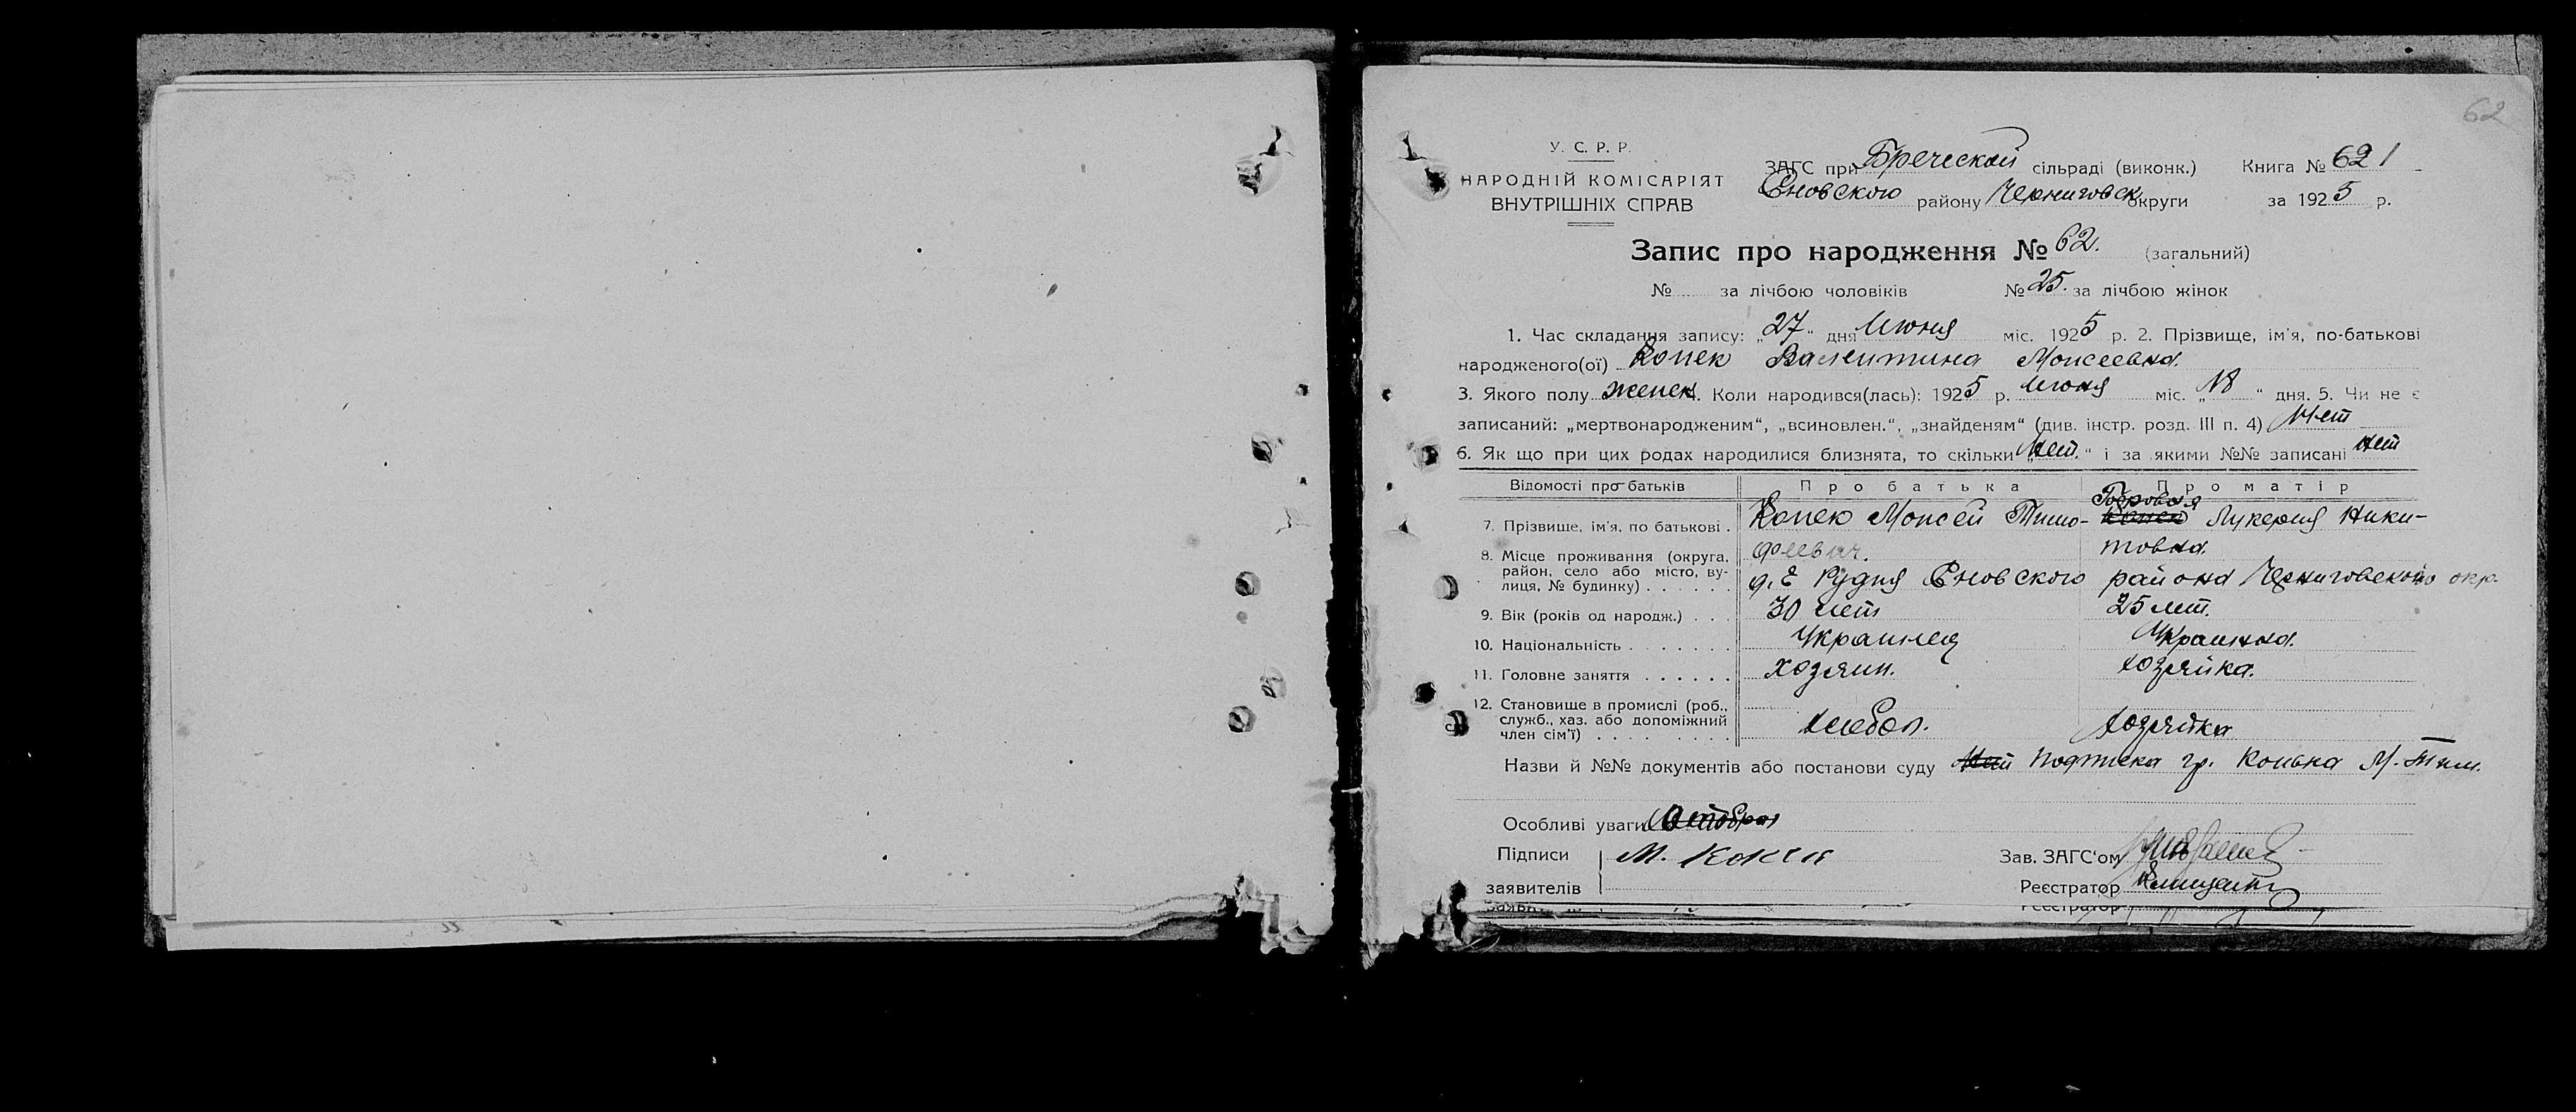 62
У. С. Р. Р.
НАРОДНІЙ КОМІСАРІЯТ
ВНУТРІШНІХ СПРАВ
ЗАГС при Бреческой сільраді (виконк.) Книга № 62 1
Сновского району Черниговск округи за 1925 р.
Запис про народження № 62. (загальний)
№ за лічбою чоловіків № 25. за лічбою жінок
1. Час складання запису: „27“ дня Июня міс. 1925 р. 2. Прізвище, ім'я, по-батькові
народженого(ої) Копек Валентина Моисеевна.
3. Якого полу женск. Коли народився(лась): 1925 р. Июня міс. „18“ дня. 5. Чи не є
записаний: „мертвонародженим“, „всиновлен.“, „знайденям“ (див. інстр. розд. III п. 4) Нет
6. Як що при цих родах народилися близнята, то скільки „Нет.“ і за якими №№ записані нет
Відомості про батьків Про батька Про матір
7. Прізвище, ім'я, по батькові . Копек Моисей Тимо- Лукерия Ники-
феевич. товна.
8. Місце проживання (округа,
район, село або місто, ву-
лиця, № будинку) . . . . . . Рудня Сновского района Черниговского окр.
9. Вік (років од народж.) . . . 30 лет 25 лет.
10. Національність . . . . . . . Украинец Украинка.
11. Головне заняття . . . . . . хозяин. хозяйка.
12. Становище в промислі (роб.,
служб., хаз. або допоміжний
член сім'ї) . . . . . . . . . хлебоп. хозяйка
Назви й №№ документів або постанови суду Подписка гр. Копька М. Тим.
Особливі уваги
Підписи М. Зав. ЗАГС'ом
заявителів Реєстратор